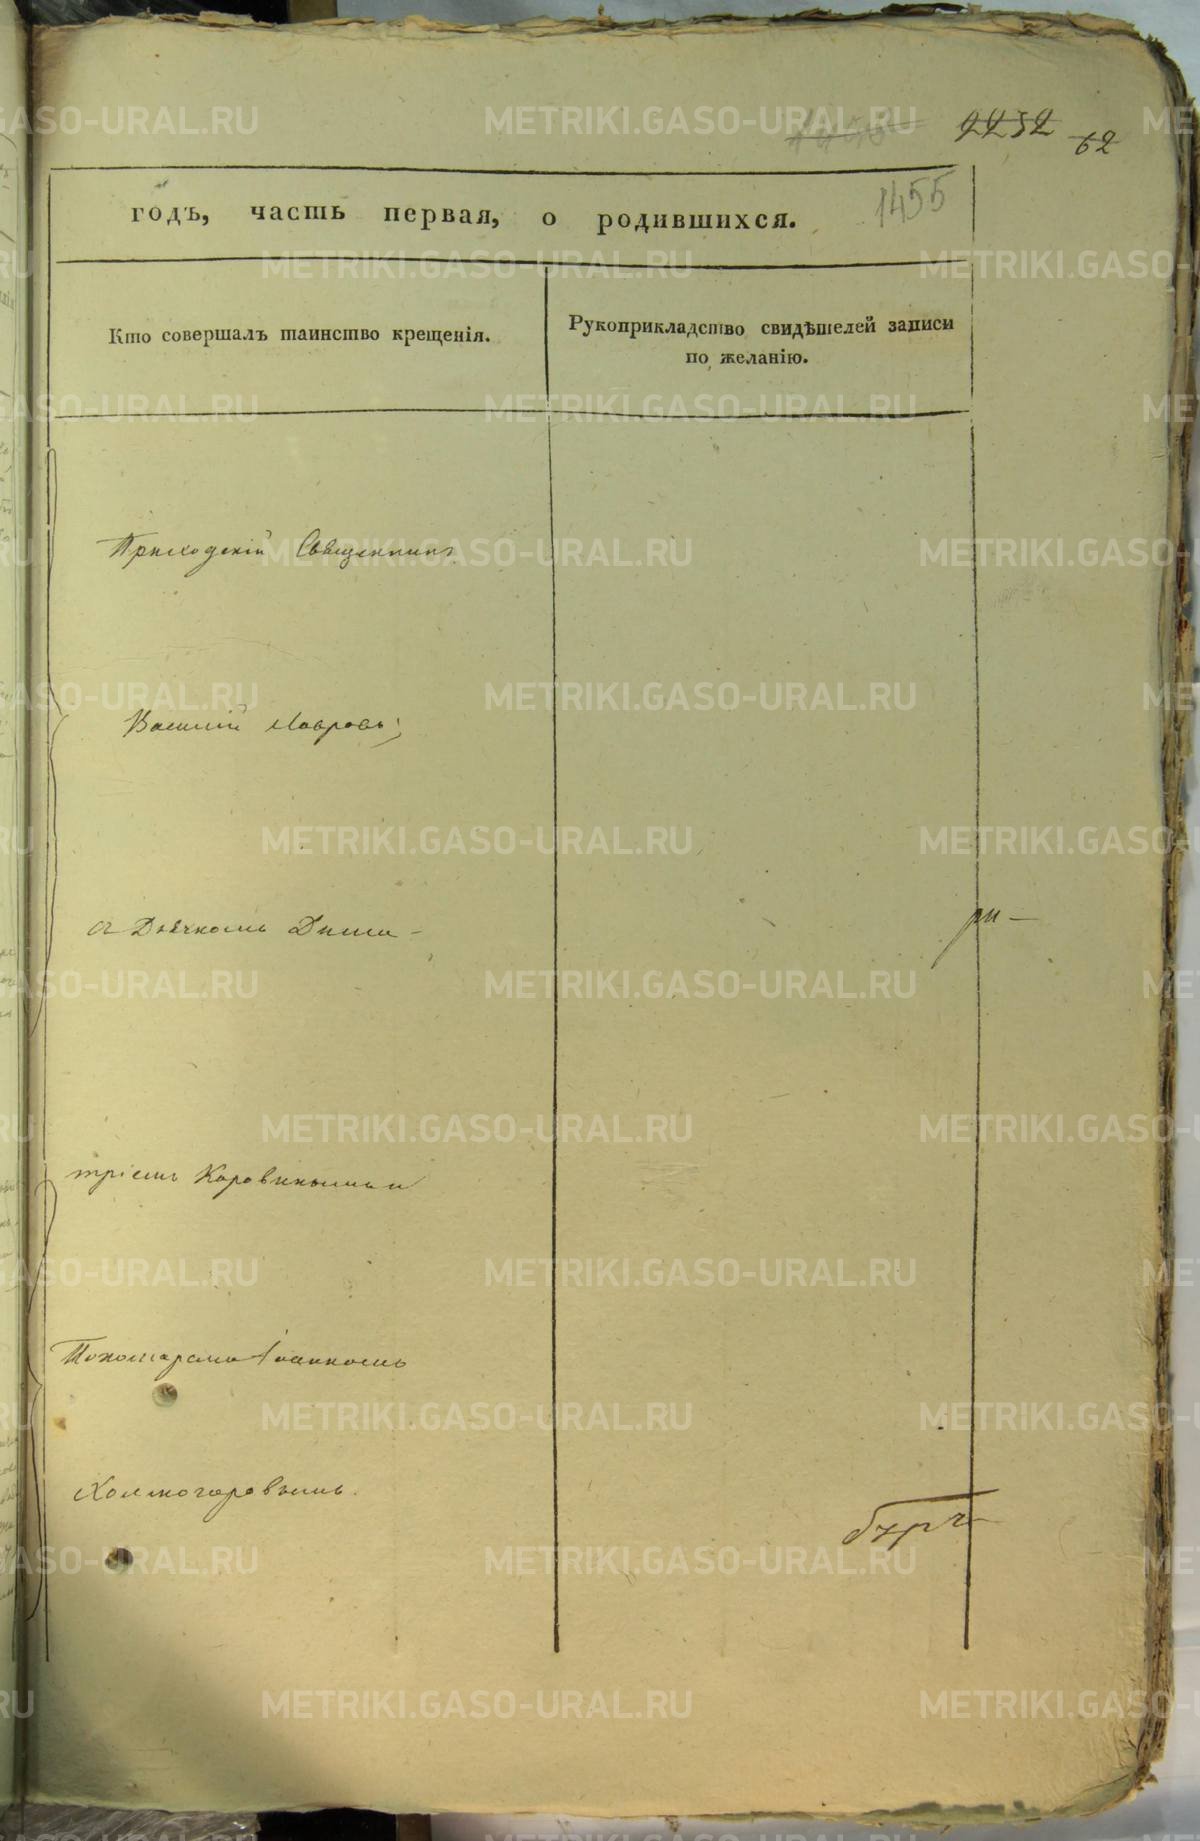 2252
62
1455
годъ, часть первая, о родившихся.
Кто совершалъ таинство крещенія.
Рукоприкладство свидѣтелей записи
по желанію.
Приходскій Священникъ
Василій Лавровъ;
съ Дьячкомъ Дими-
ри-
тріемъ Коровинымъ и
Пономаремъ Іоанномъ
Холмогоровымъ.
METRIKI.GASO-URAL.RU